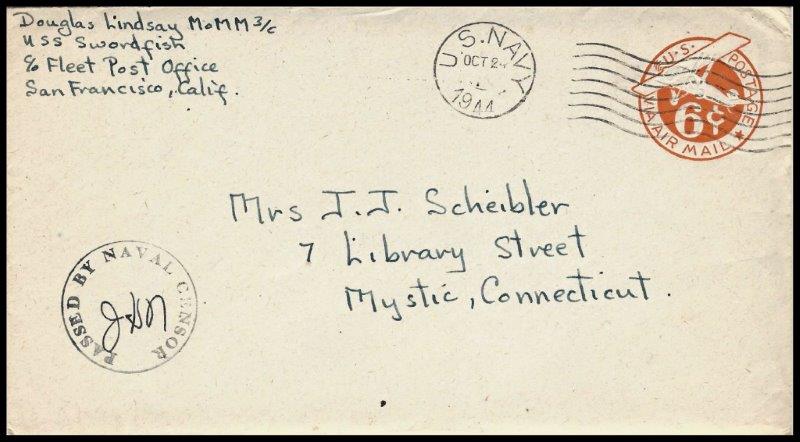 Douglas Lindsay MoMM 3/c
USS Swordfish
c/o Fleet Post Office
San Francisco, Calif.
U.S. NAVY
OCT 24
1944
U.S. POSTAGE
6¢
VIA AIR MAIL
Mrs J.J. Scheibler
7 Library Street
Mystic, Connecticut.
PASSED BY NAVAL CENSOR